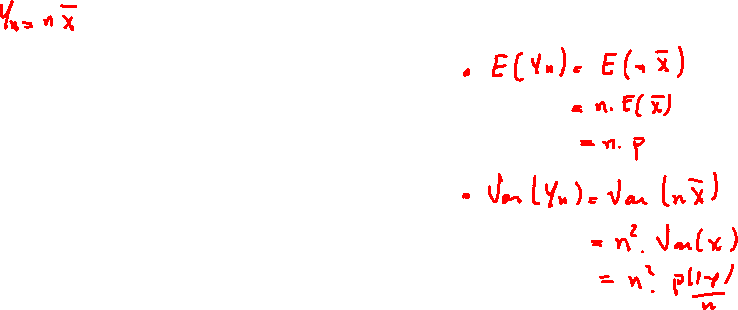 Yn = n x̄
• E(Yn) = E(n x̄)
= n. E(x̄)
= n. p
• Var(Yn) = Var(n x̄)
= n². Var(x)
= n². p(1-p)/n